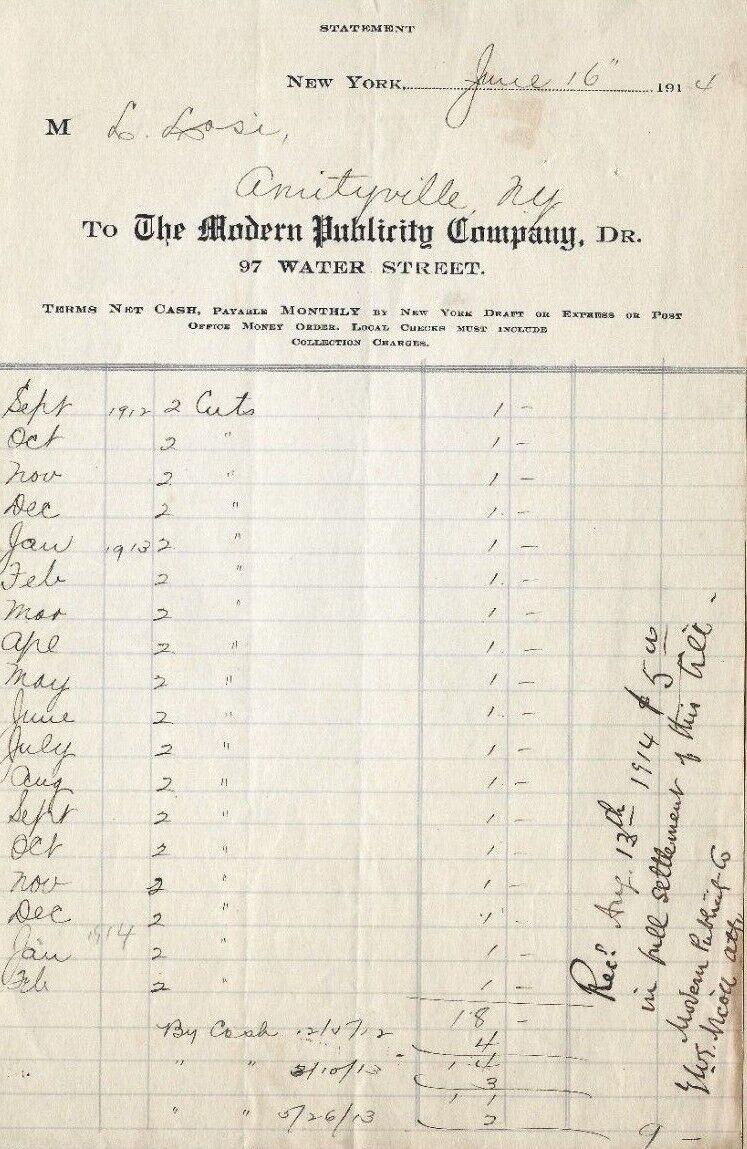 STATEMENT
NEW YORK, June 16" 1914
M L. Losi,
Amityville, NY
TO The Modern Publicity Company, DR.
97 WATER STREET.
TERMS NET CASH, PAYABLE MONTHLY BY NEW YORK DRAFT OR EXPRESS OR POST
OFFICE MONEY ORDER. LOCAL CHECKS MUST INCLUDE
COLLECTION CHARGES.
Sept 1912 2 Cuts 1 -
Oct 2 " 1 -
Nov 2 " 1 -
Dec 2 " 1 -
Jan 1913 2 " 1 -
Feb 2 " 1 -
Mar 2 " 1 -
Apl 2 " 1 -
May 2 " 1 -
June 2 " 1 -
July 2 " 1 -
Aug 2 " 1 -
Sept 2 " 1 -
Oct 2 " 1 -
Nov 2 " 1 -
Dec 2 " 1 -
Jan 1914 2 " 1 -
Feb 2 " 1 -
18 -
By Cash 12/ /12 4
14
" " 3/10/13 3
11
" " 5/26/13 2
9 -
Rec'd Aug. 13th 1914 $5 00
in full settlement of this bill -
Modern Publicity Co
Nicoll atty